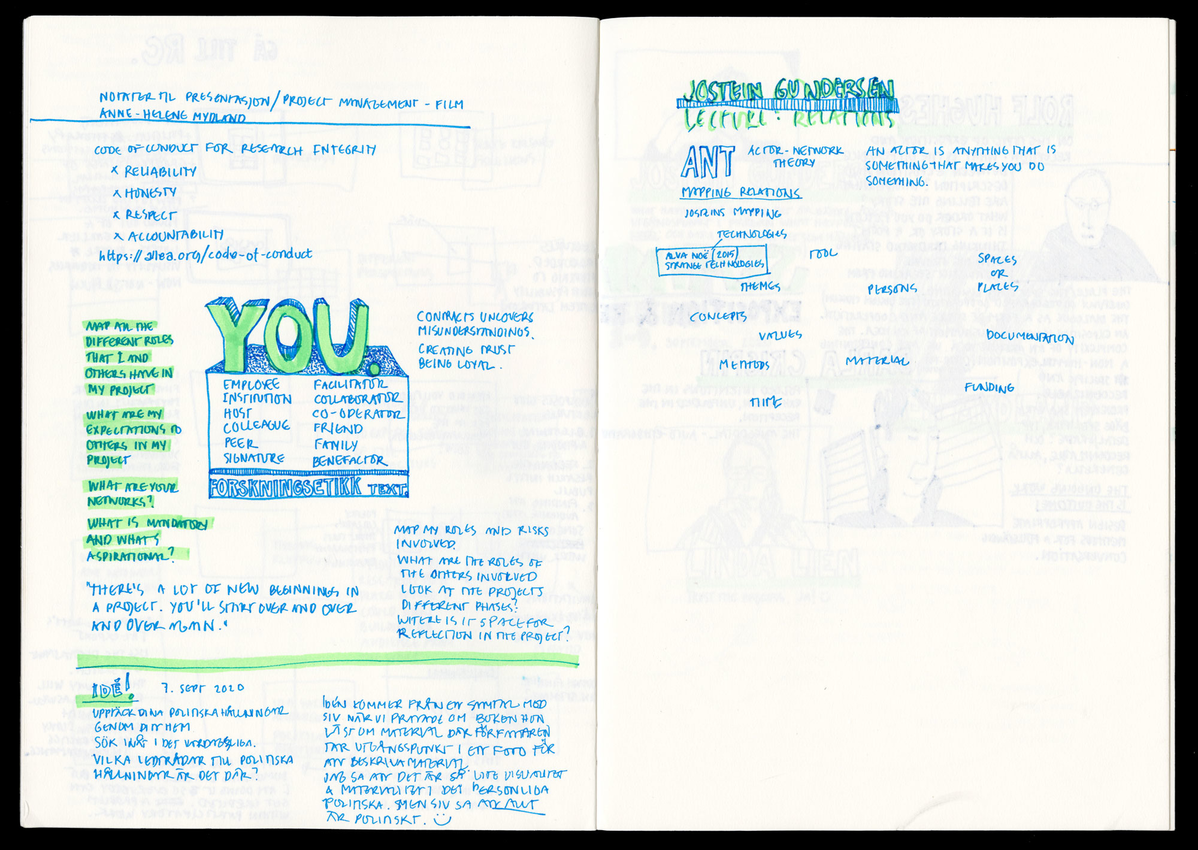 NOTATER TIL PRESENTASJON/PROJECT MANAGEMENT - FILM
ANNE-HELENE MYDLAND
CODE OF CONDUCT FOR RESEARCH INTEGRITY
x RELIABILITY
x HONESTY
x RESPECT
x ACCOUNTABILITY
https://allea.org/code-of-conduct
MAP ALL THE
DIFFERENT ROLES
THAT I AND
OTHERS HAVE IN
MY PROJECT
WHAT ARE MY
EXPECTATIONS TO
OTHERS IN MY
PROJECT
WHAT ARE YOUR
NETWORKS?
WHAT IS MANDATORY
AND WHAT'S
ASPIRATIONAL?
YOU.
EMPLOYEE
INSTITUTION
HOST
COLLEAGUE
PEER
SIGNATURE
FACILITATOR
COLLABORATOR
CO-OPERATOR
FRIEND
FAMILY
BENEFACTOR
FORSKNINGSETIKK TEXT
CONTRACTS UNCOVERS
MISUNDERSTANDINGS.
CREATING TRUST
BEING LOYAL.
MAP MY ROLES AND RISKS
INVOLVED.
WHAT ARE THE ROLES OF
THE OTHERS INVOLVED
LOOK AT THE PROJECTS
DIFFERENT PHASES?
WHERE IS IT SPACE FOR
REFLECTION IN THE PROJECT?
"THERE'S A LOT OF NEW BEGINNINGS IN
A PROJECT. YOU'LL START OVER AND OVER
AND OVER AGAIN."
IDÉ!
7. SEPT 2020
UPPTÄCK DINA POLITISKA HÅLLNINGAR
GENOM DITT HEM
SÖK INÅT I DET VARDAGLIGA.
VILKA LEDTRÅDAR TILL POLITISKA
HÅLLNINGAR ÄR DET DÄR?
IDÉN KOMMER FRÅN ETT SAMTAL MED
SIV NÄR VI PRATADE OM BOKEN HON
LÄST OM MATERIAL DÄR FÖRFATTAREN
TAR UTGÅNGSPUNKT I ETT FOTO FÖR
ATT BESKRIVA MATERIAL.
JAG SA ATT DET ÄR SÅ LITE VISUALITET
& MATERIALITET I DET PERSONLIGA
POLITISKA. MEN SIV SA ATT ALLT
ÄR POLITISKT.
JOSTEIN GUNDERSEN
LECTURE: RELATIONS
ANT ACTOR-NETWORK
THEORY
AN ACTOR IS ANYTHING THAT IS
SOMETHING THAT MAKES YOU DO
SOMETHING.
MAPPING RELATIONS
JOSTEINS MAPPING
TECHNOLOGIES
ALVA NOË (2015)
STRANGE TECHNOLOGIES
TOOL
SPACES
OR
PLACES
THEMES
PERSONS
CONCEPTS
VALUES
DOCUMENTATION
METHODS
MATERIAL
FUNDING
TIME